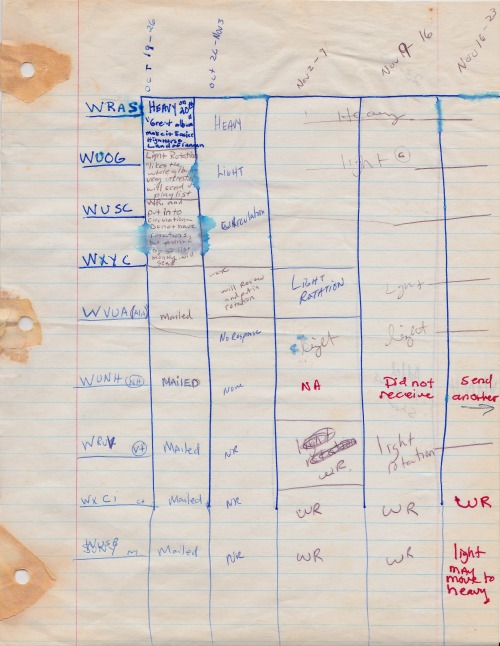 oct 19-26
oct 26-Nov3
Nov 2-9
Nov 9 16
Nov 16-23
WRAS
HEAVY on
20th
"Great album
HEAVY
Heavy
WUOG
Light Rotation
likes the
whole album
very interested
will send
playlist
LIGHT
light
WUSC
put into
circulation
Do not have
rotations
In Circulation
WXYC
will Review
and put in
rotation
LIGHT
ROTATION
Light
WVUA
Mailed
No Response
light
light
WUNH
NH
MAILED
None
NA
Did not
receive
send
another
WRUV
VT
Mailed
NR
light
rotation
WR
light
rotation
WXCI
Mailed
NR
WR
WR
WR
Mailed
NR
WR
WR
light
may
move to
heavy